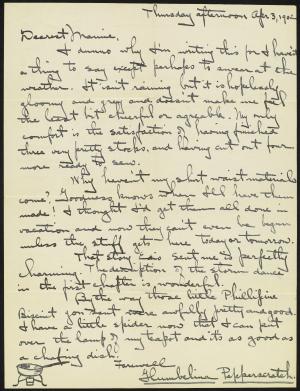 Thursday afternoon Apr. 3, 190
Dearest Mamie,
I dunno why I'm writing this for I haven't
a thing to say except perhaps to swear at the
weather. It isn't raining but it is hopelessly
gloomy and grey and doesn't make me feel
the least bit cheerful or agreeable. My only
comfort is the satisfaction of having finished
three very pretty straps, and having cut out four
more ready to sew.
Why haven't my shirt waist materials
come? Goodness knows when I'll have them
made! I thought I'd get them all done in
vacation and now they can't even be begun
unless the stuff gets here today or tomorrow.
That story Edis sent me is perfectly
charming. The description of the storm dance
in the first chapter is wonderful.
By the way those little Phillipine
Biscuit you sent were awfully pretty and good.
I have a little spider now that I can put
over the lamp of my teapot and its as good as
a chafing dish!
Farewell
Thumbelina Pepperscratch.